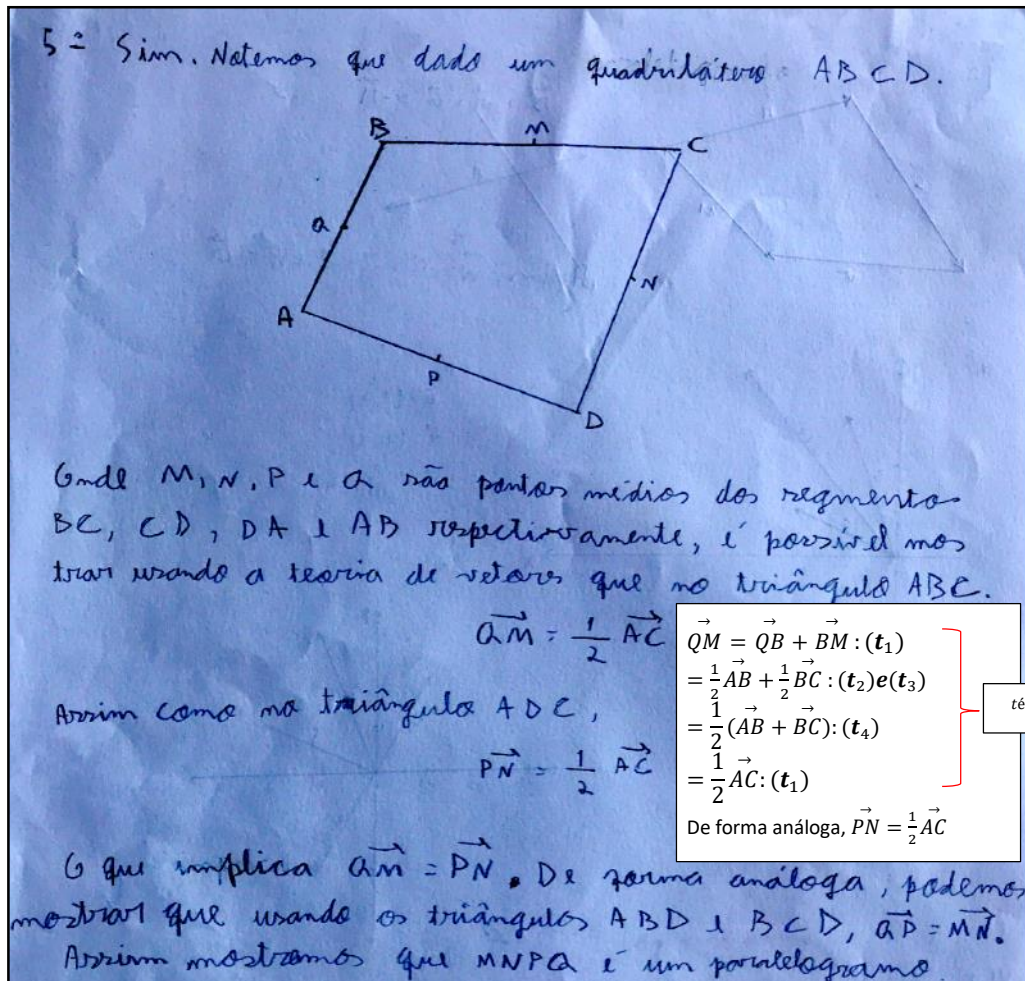 5= Sim. Notemos que dado um quadrilátero ABCD.
B M C
Q N
A
P
D
Onde M, N, P e Q são pontos médios dos segmento
BC, CD, DA e AB respectivamente, é possível mos
trar usando a teoria de vetores que no triângulo ABC.
QM = 1/2 AC
Assim como no triângulo ADC,
PN = 1/2 AC
QM = QB + BM : (t₁)
= 1/2 AB + 1/2 BC : (t₂)e(t₃)
= 1/2 (AB + BC): (t₄)
= 1/2 AC: (t₁)
De forma análoga, PN = 1/2 AC
té
O que implica QM = PN. De forma análoga, podemos
mostrar que usando os triângulos ABD e BCD, QP = MN.
Assim mostramos que MNPQ é um paralelogramo